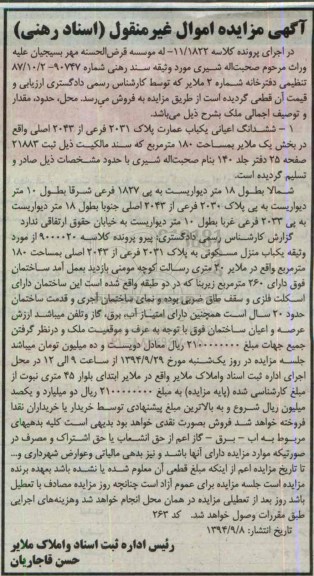 آگهی مزایده اموال غیرمنقول (اسناد رهنی)
در اجرای پرونده کلاسه ۱۱/۱۸۲۲- له موسسه قرض‌الحسنه مهر بسیجیان علیه
وراث مرحوم صحبت‌اله شیری مورد وثیقه سند رهنی شماره ۹۰۷۴۷-۸۷/۱۰/۲
تنظیمی دفترخانه شماره ۲ ملایر که توسط کارشناس رسمی دادگستری ارزیابی و
قیمت آن قطعی گردیده است از طریق مزایده به فروش می‌رسد. محل، حدود، مقدار
و توصیف اجمالی ملک بشرح ذیل می‌باشد.
۱ - ششدانگ اعیانی یکباب عمارت پلاک ۲۰۳۱ فرعی از ۲۰۴۳ اصلی واقع
در بخش یک ملایر بمساحت ۱۸۰ مترمربع که سند مالکیت ذیل ثبت ۲۱۸۸۳
صفحه ۲۵ دفتر جلد ۱۴۰ بنام صحبت‌اله شیری با حدود مشخصات ذیل صادر و
تسلیم گردیده است.
شمالا بطول ۱۸ متر دیواریست به پی ۱۸۲۷ فرعی شرقا بطول ۱۰ متر
دیواریست به پی پلاک ۲۰۳۰ فرعی از ۲۰۴۳ اصلی جنوبا بطول ۱۸ متر دیواریست
به پی ۲۰۳۳ فرعی غربا بطول ۱۰ متر دیواریست به خیابان حقوق ارتفاقی ندارد
گزارش کارشناس رسمی دادگستری: پیرو پرونده کلاسه ۹۰۰۰۰۲۰ از مورد
وثیقه یکباب منزل مسکونی به پلاک ۲۰۳۱ فرعی از ۲۰۴۳ اصلی بمساحت ۱۸۰
مترمربع واقع در ملایر ۴۰ متری رسالت کوچه مومنی بازدید بعمل آمد ساختمان
فوق دارای ۲۶۰ مترمربع زیربنا که در دو طبقه واقع شده است این ساختمان دارای
اسکلت فلزی و سقف طاق ضربی بوده و نمای ساختمان آجری و قدمت ساختمان
حدود ۲۰ سال است همچنین دارای امتیاز آب، برق، گاز وتلفن میباشد ارزش
عرصه و اعیان ساختمان فوق با توجه به عرف و موقعیت ملک و درنظر گرفتن
جمیع جهات مبلغ ۲۱۰۰۰۰۰۰۰۰ ریال معادل دویست و ده میلیون تومان میباشد
جلسه مزایده در روز یک‌شنبه مورخ ۱۳۹۴/۹/۲۹ از ساعت ۹ الی ۱۲ در محل
اجرای اداره ثبت اسناد واملاک ملایر واقع در ملایر ابتدای بلوار ۴۵ متری نبوت از
مبلغ کارشناسی شده (پایه مزایده) به مبلغ ۲۱۰۰۰۰۰۰۰۰ ریال دو میلیارد و یکصد
میلیون ریال شروع و به بالاترین مبلغ پیشنهادی توسط خریدار یا خریداران نقدا
فروخته خواهد شد فروش بصورت نقدی خواهد بود بدیهی است کلیه بدهیهای
مربوط به اب - برق - گاز اعم از حق انشعاب یا حق اشتراک و مصرف در
صورتیکه موارد مزایده دارای آنها باشد و نیز بدهی مالیاتی وعوارض شهرداری و...
تا تاریخ مزایده اعم از اینکه مبلغ قطعی آن معلوم شده یا نشده باشد بعهده برنده
مزایده است جلسه مزایده برای عموم آزاد است چنانچه روز مزایده مصادف با تعطیل
باشد روز بعد از تعطیلی مزایده در همان محل انجام خواهد شد وهزینه‌های اجرایی
طبق مقررات وصول خواهد شد. کد ۲۶۳
تاریخ انتشار: ۱۳۹۴/۹/۸
رئیس اداره ثبت اسناد واملاک ملایر
حسن قاجاریان